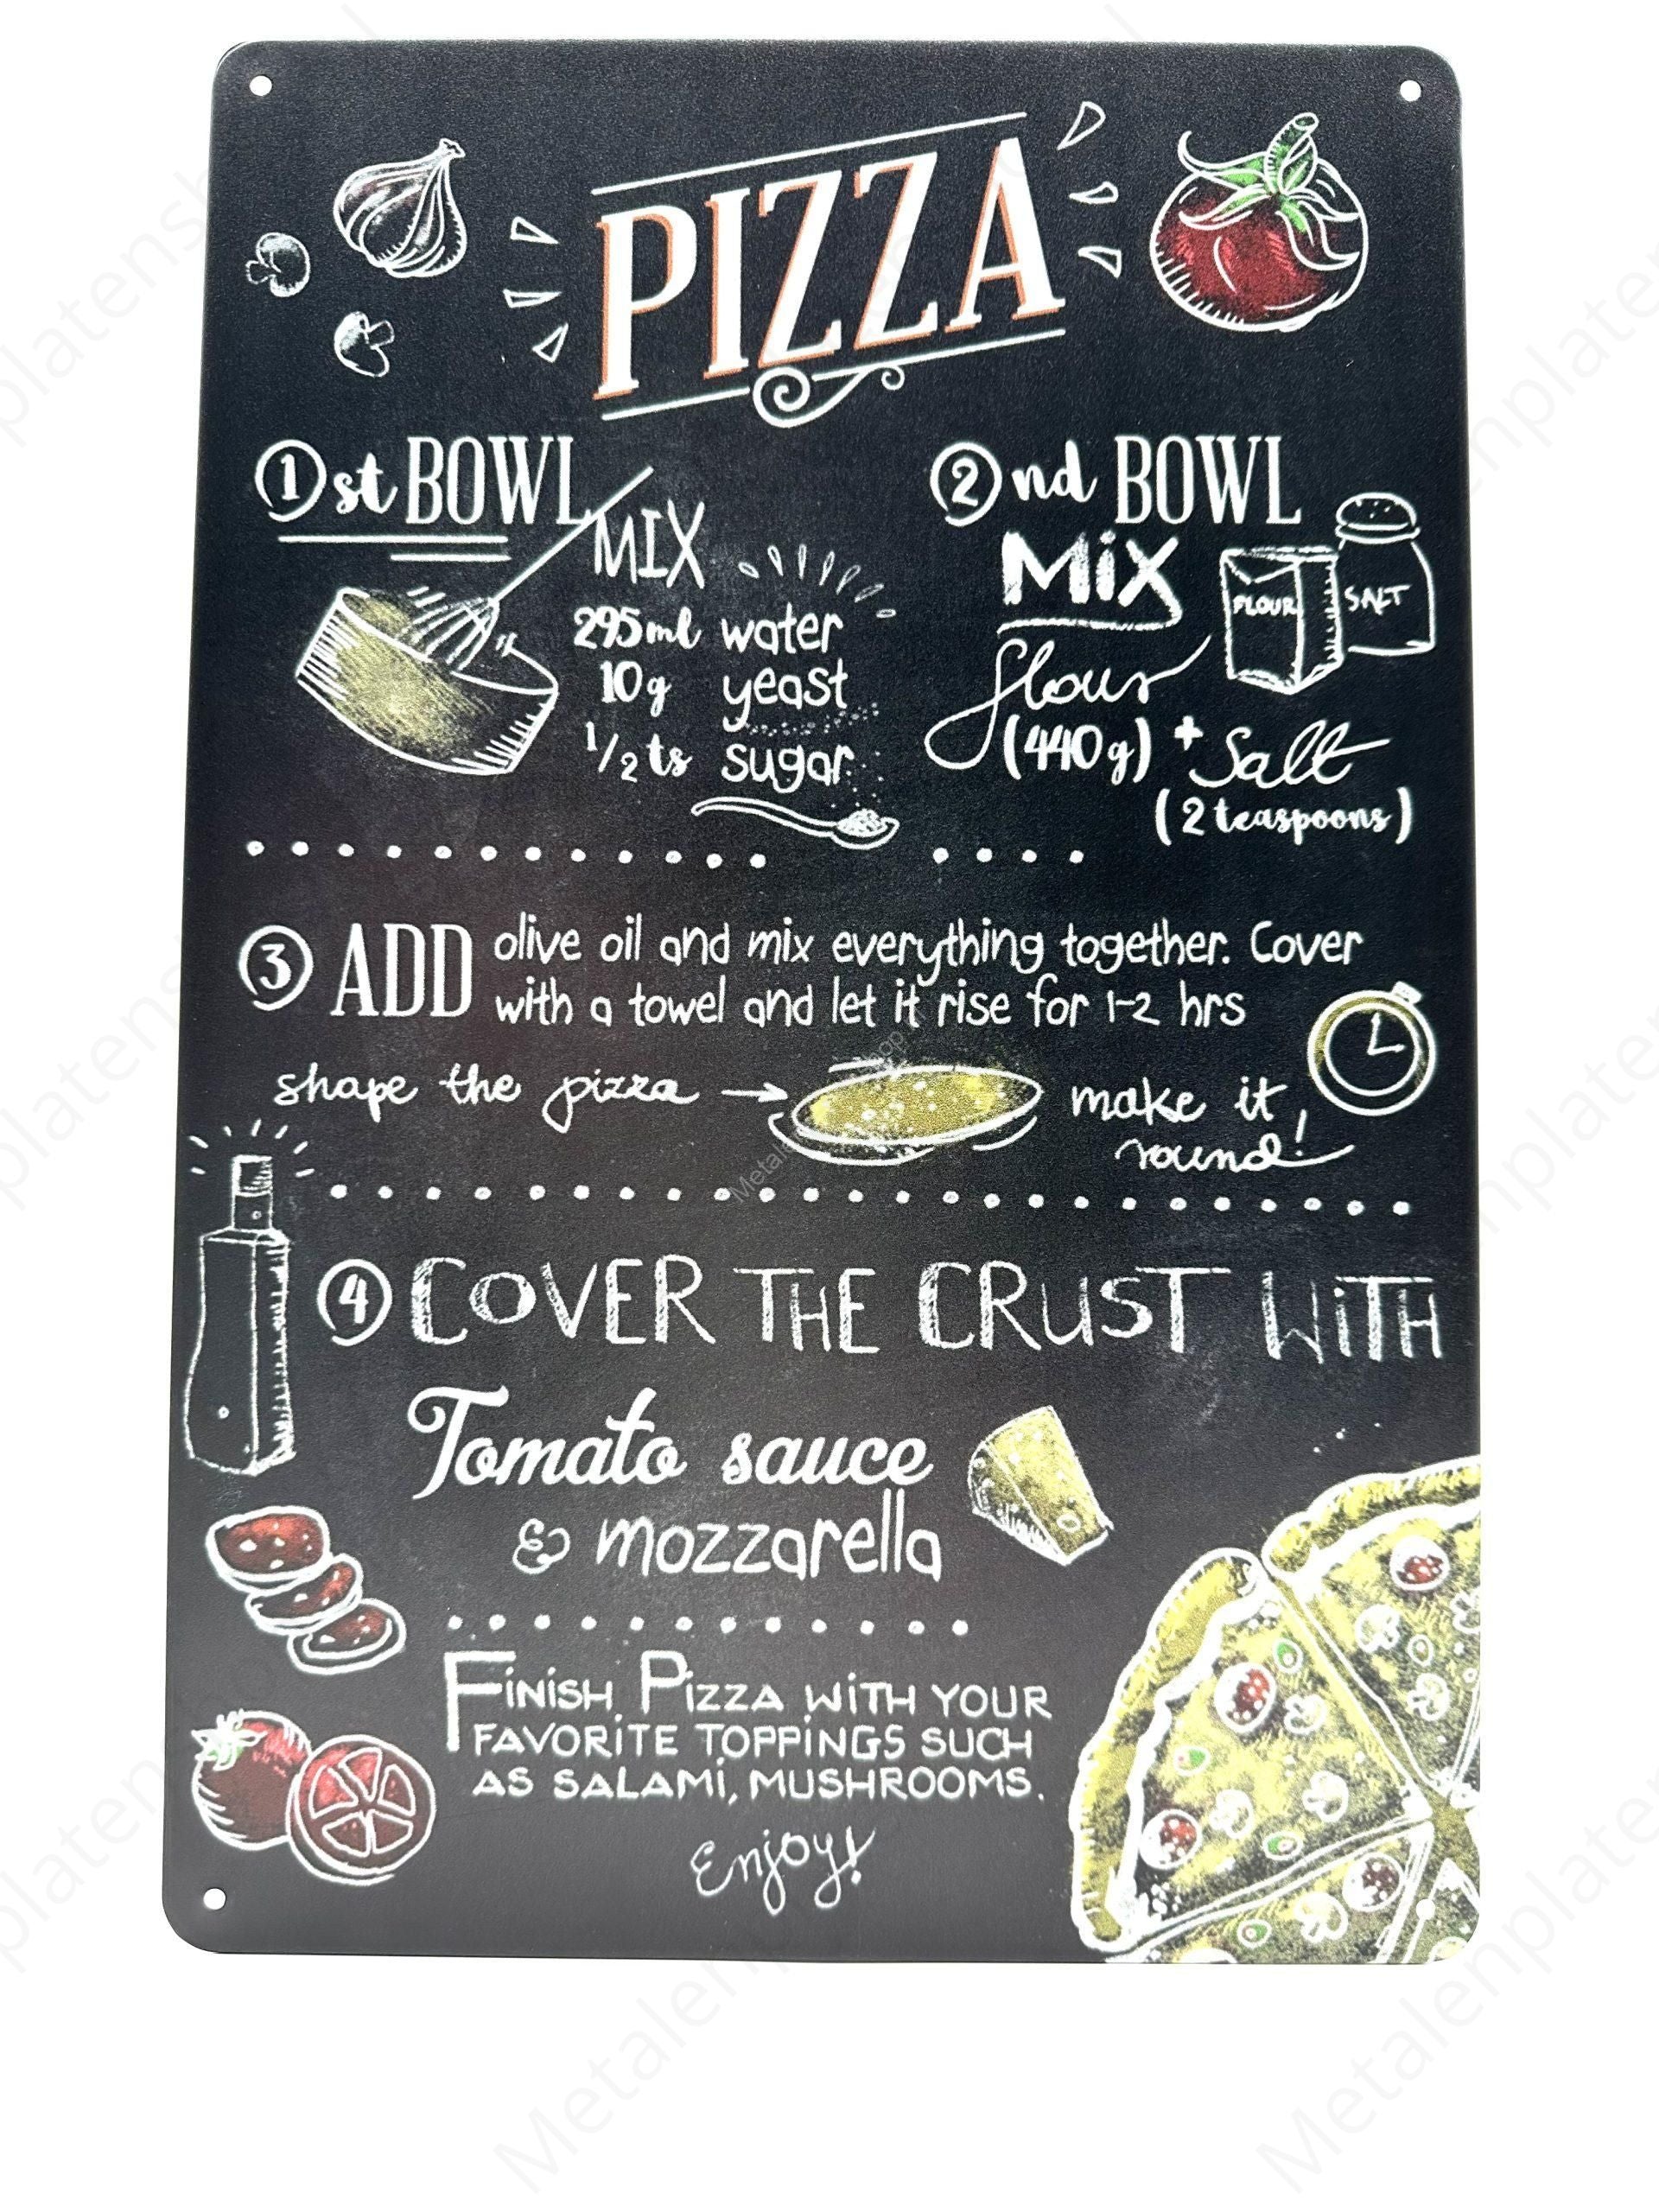 PIZZA
1st BOWL
MIX
295ml water
10g yeast
1/2 ts sugar
2nd BOWL
MiX
FLOUR
SALT
flour
(440g) + Salt
(2 teaspoons)
3 ADD olive oil and mix everything together. Cover
with a towel and let it rise for 1-2 hrs
shape the pizza → make it
round!
4 COVER THE CRUST WiTH
Tomato sauce
& mozzarella
FiNiSH PiZZA WiTH YOUR
FAVORiTE TOPPiNGS SUCH
AS SALAMi, MUSHROOMS.
Enjoy!
Metalenplatenshop.nl